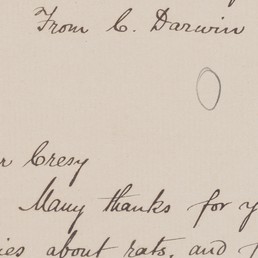 From C. Darwin
r Cresy
Many thanks for y
ies about rats, and